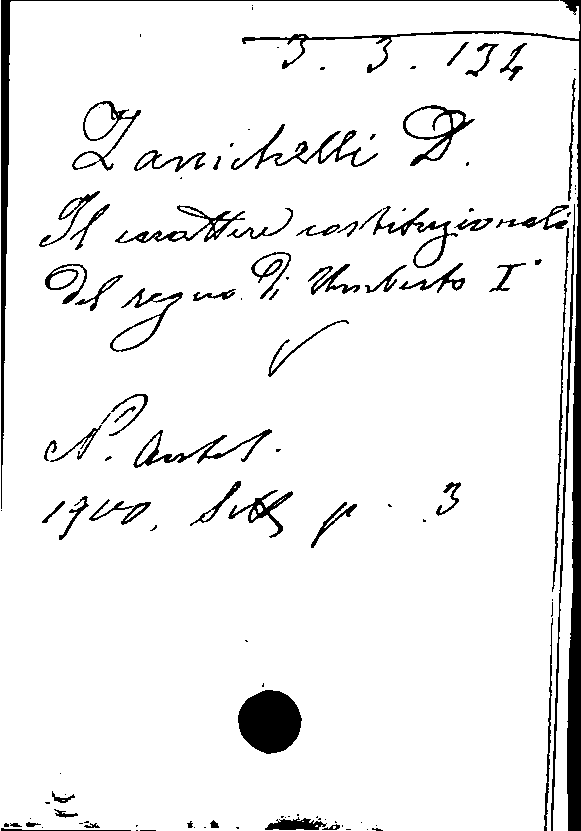 3. 3. 134
Zanichelli D.
Il carattere costituzionale
del regno di Umberto I°
N. Antol.
1900, Sett p. 3